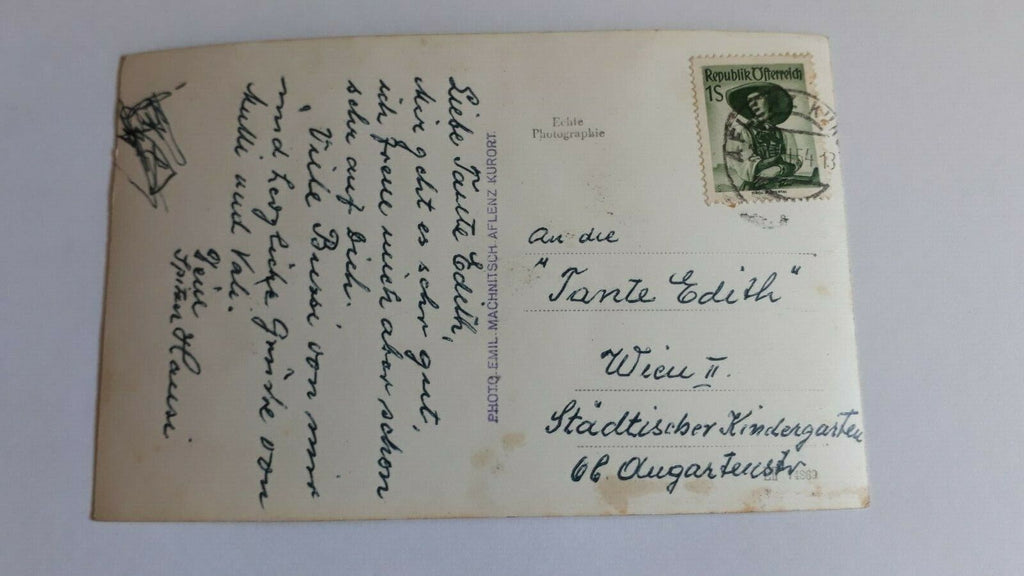 Liebe Tante Edith,
Mir geht es sehr gut,
ich freue mich aber schon
sehr auf Dich.
Viele Bussi von mir
und herzliche Grüße von
Mutti und Vati.
Dein
Hansi
PHOTO EMIL MACHNITSCH AFLENZ KURORT.
Echte
Photographie
Republik Österreich
1S
An die
"Tante Edith"
Wien II.
Städtischer Kindergarten
Augartenstr.